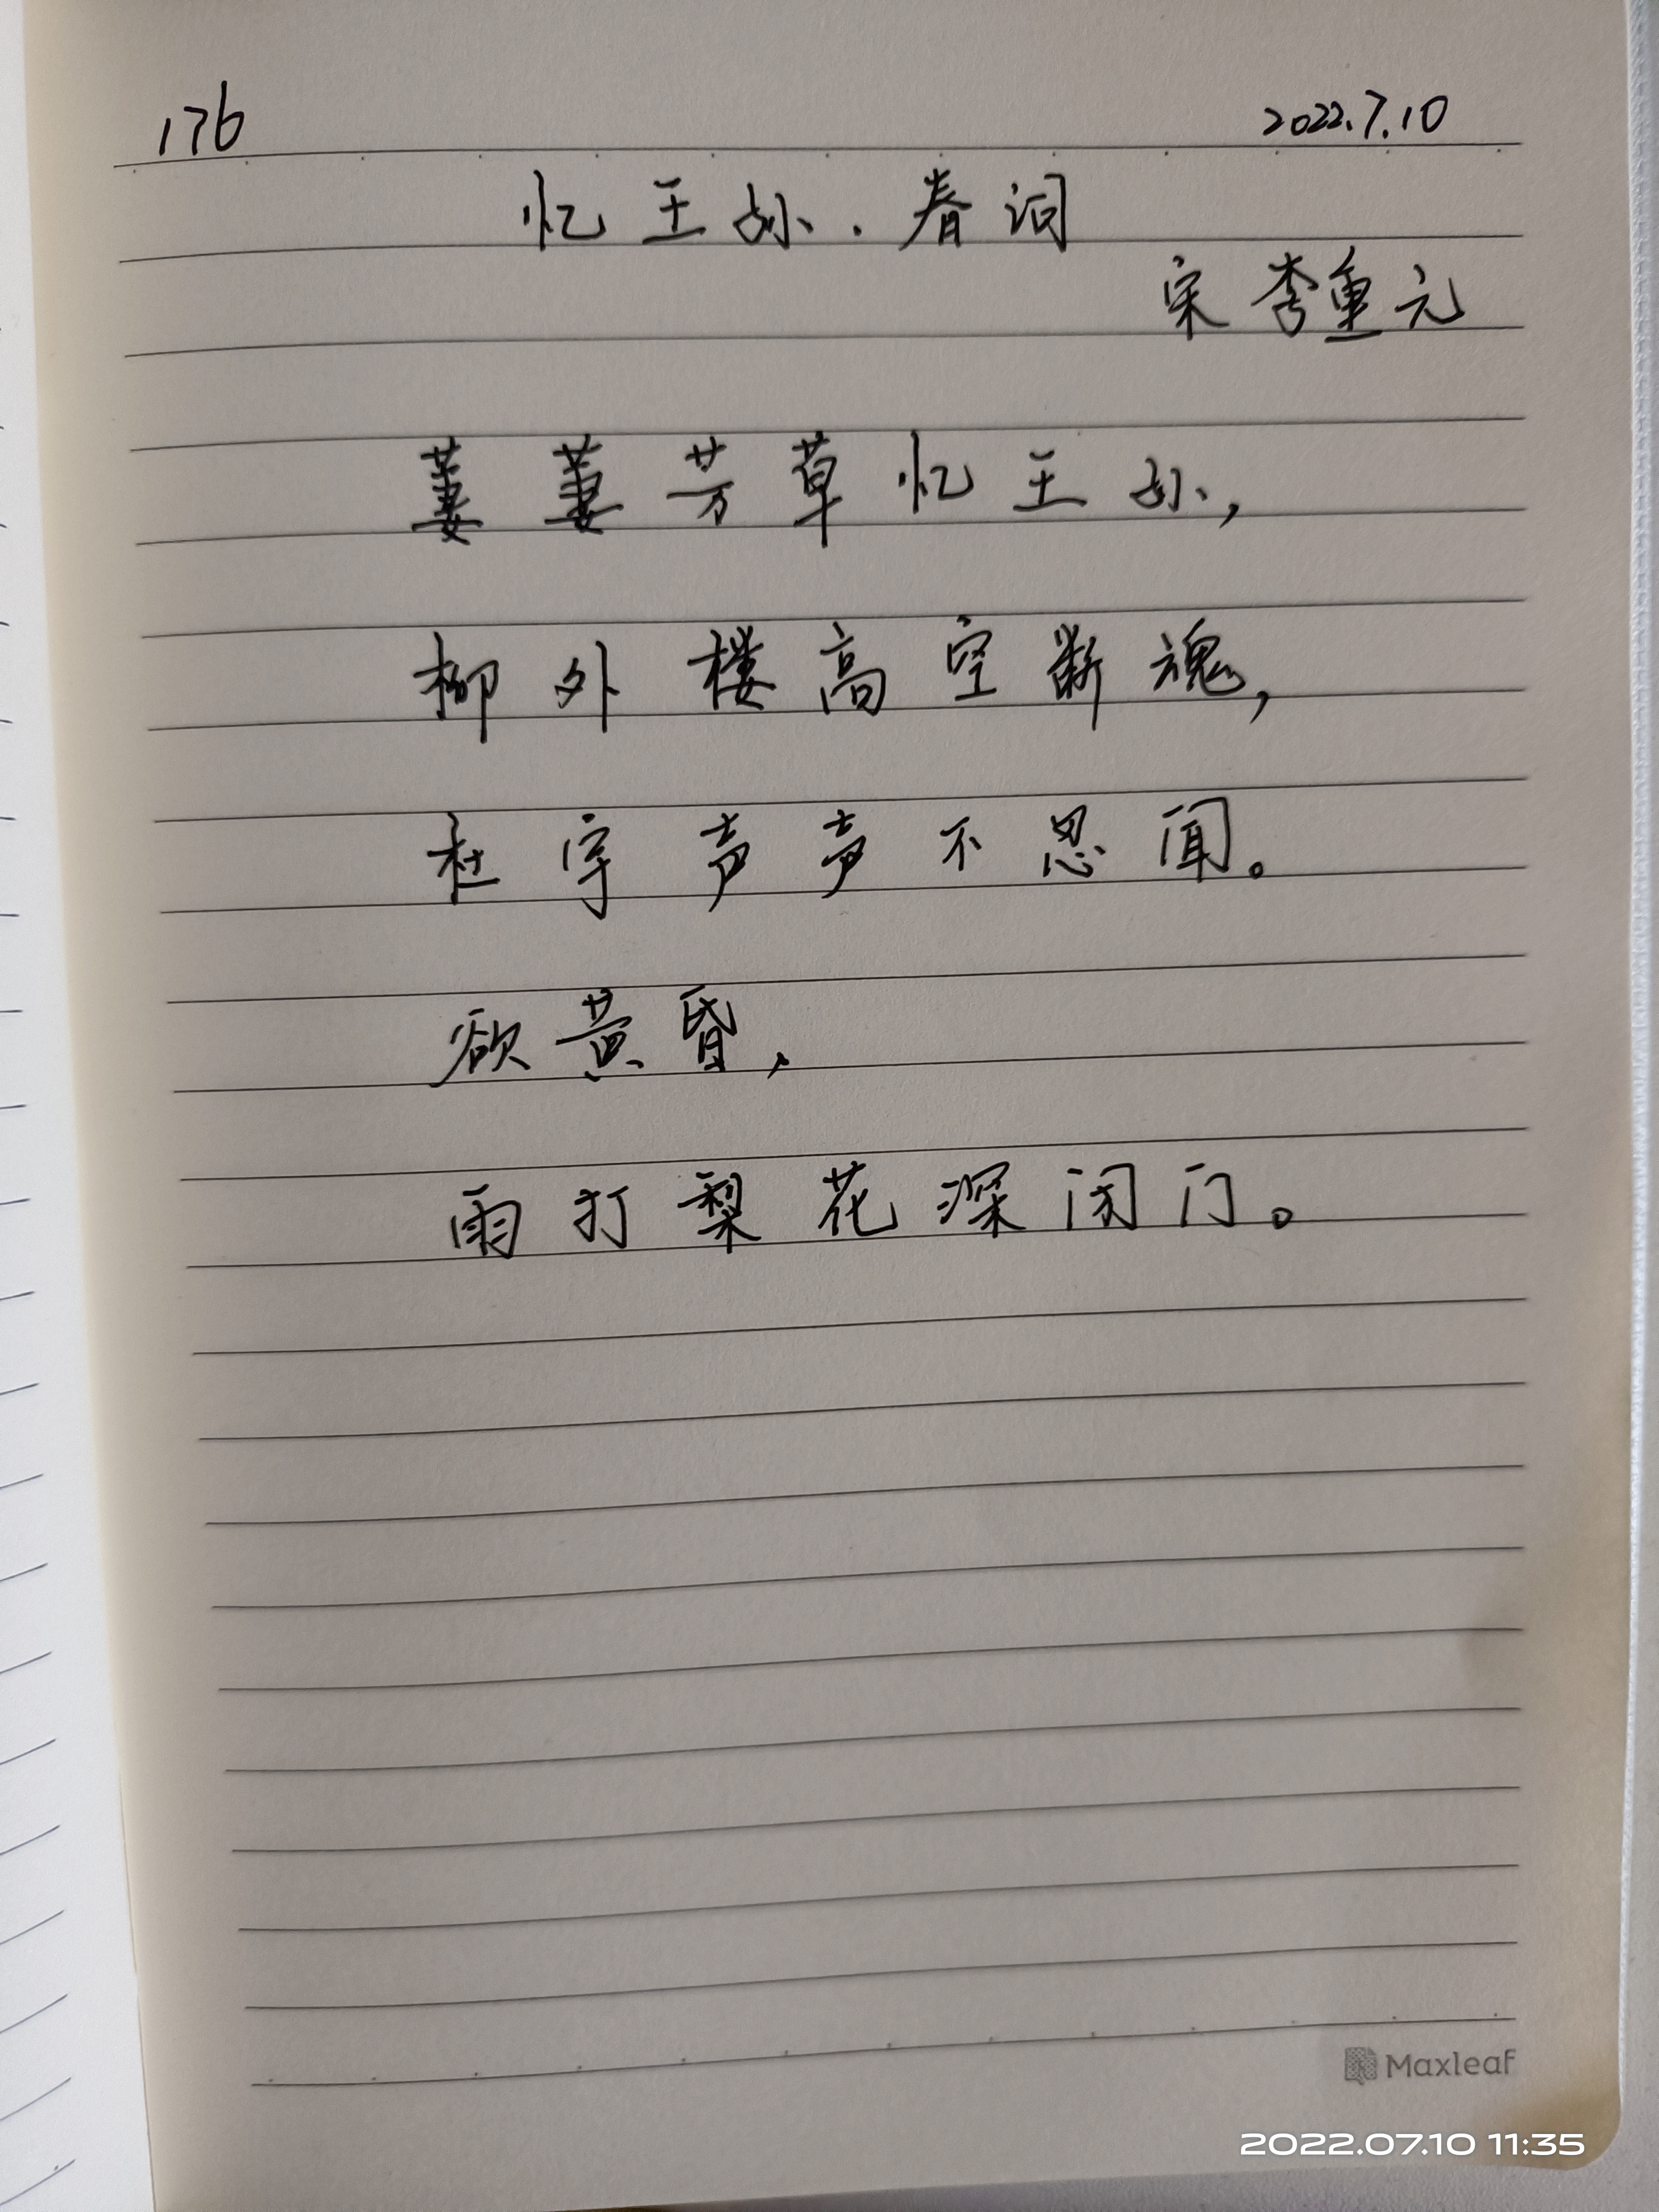 176
2022.7.10
忆王孙.春词
宋 李重元
萋萋芳草忆王孙,
柳外楼高空断魂,
杜宇声声不忍闻。
欲黄昏,
雨打梨花深闭门。
Maxleaf
2022.07.10 11:35